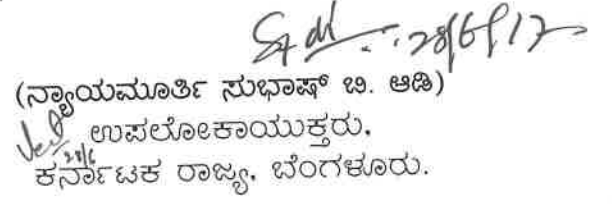 Sd/- 28/6/17
(ನ್ಯಾಯಮೂರ್ತಿ ಸುಭಾಷ್ ಬಿ. ಆಡಿ)
ಉಪಲೋಕಾಯುಕ್ತರು,
28/6
ಕರ್ನಾಟಕ ರಾಜ್ಯ, ಬೆಂಗಳೂರು.